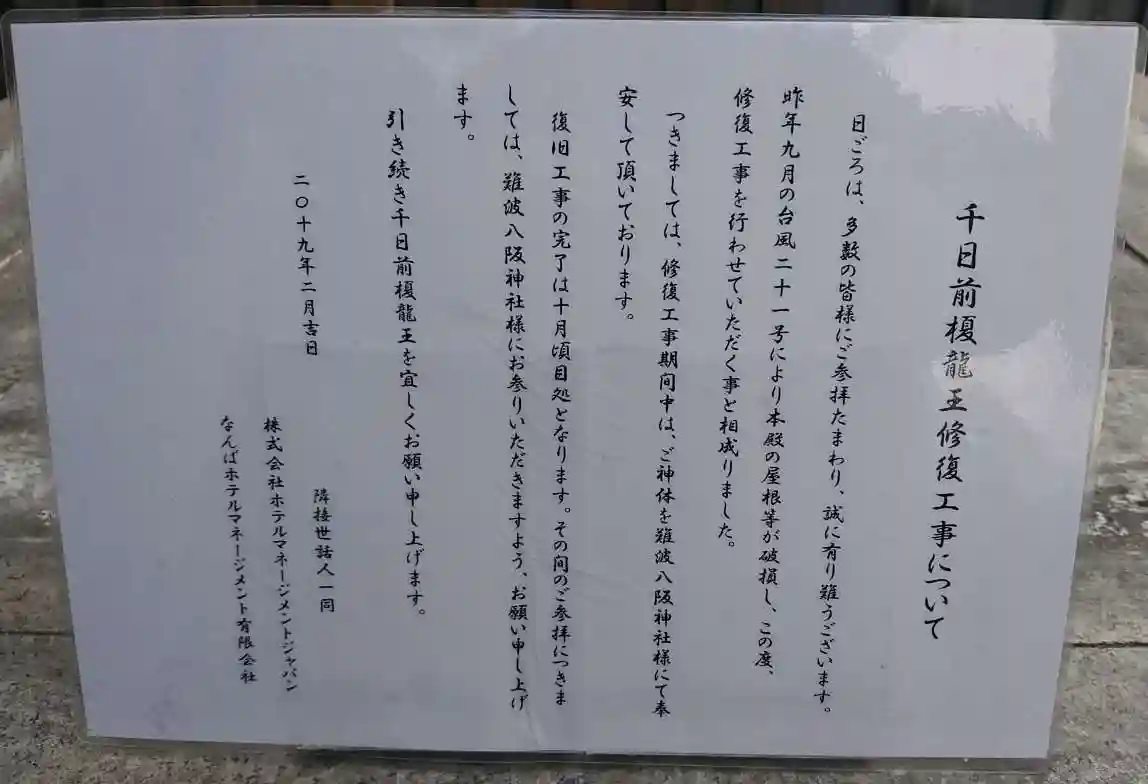 千日前榎龍王修復工事について
日ごろは、多数の皆様にご参拝たまわり、誠に有り難うございます。
昨年九月の台風二十一号により本殿の屋根等が破損し、この度、
修復工事を行わせていただく事と相成りました。
つきましては、修復工事期間中は、ご神体を難波八阪神社様にて奉
安して頂いております。
復旧工事の完了は十月頃目処となります。その間のご参拝につきま
しては、難波八阪神社様にお参りいただきますよう、お願い申し上げ
ます。
引き続き千日前榎龍王を宜しくお願い申し上げます。
二〇十九年二月吉日
隣接世話人一同
株式会社ホテルマネージメントジャパン
なんばホテルマネージメント有限会社